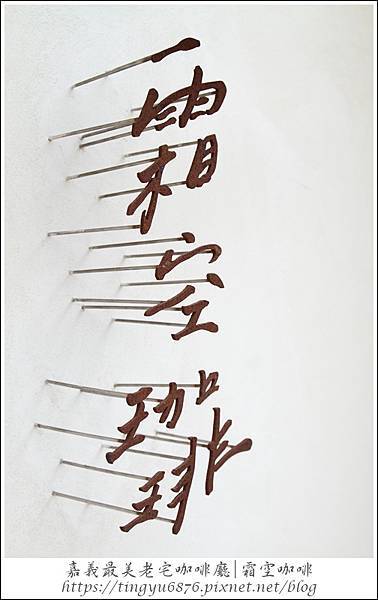 霜空珈琲
嘉義最美老宅咖啡廳|霜空咖啡
https://tingyu6876.pixnet.net/blog